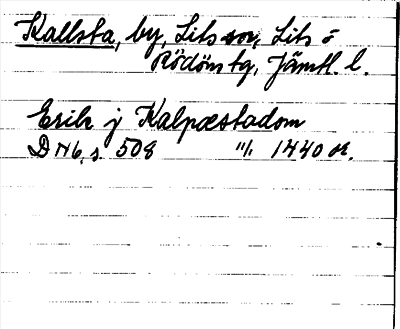 Kallsta, by, Lits sn, Lits o
Rödöns tg, Jämtl. l.
Erik j Kalpæstadom
DN 16, s. 508 11/11 1440 or.